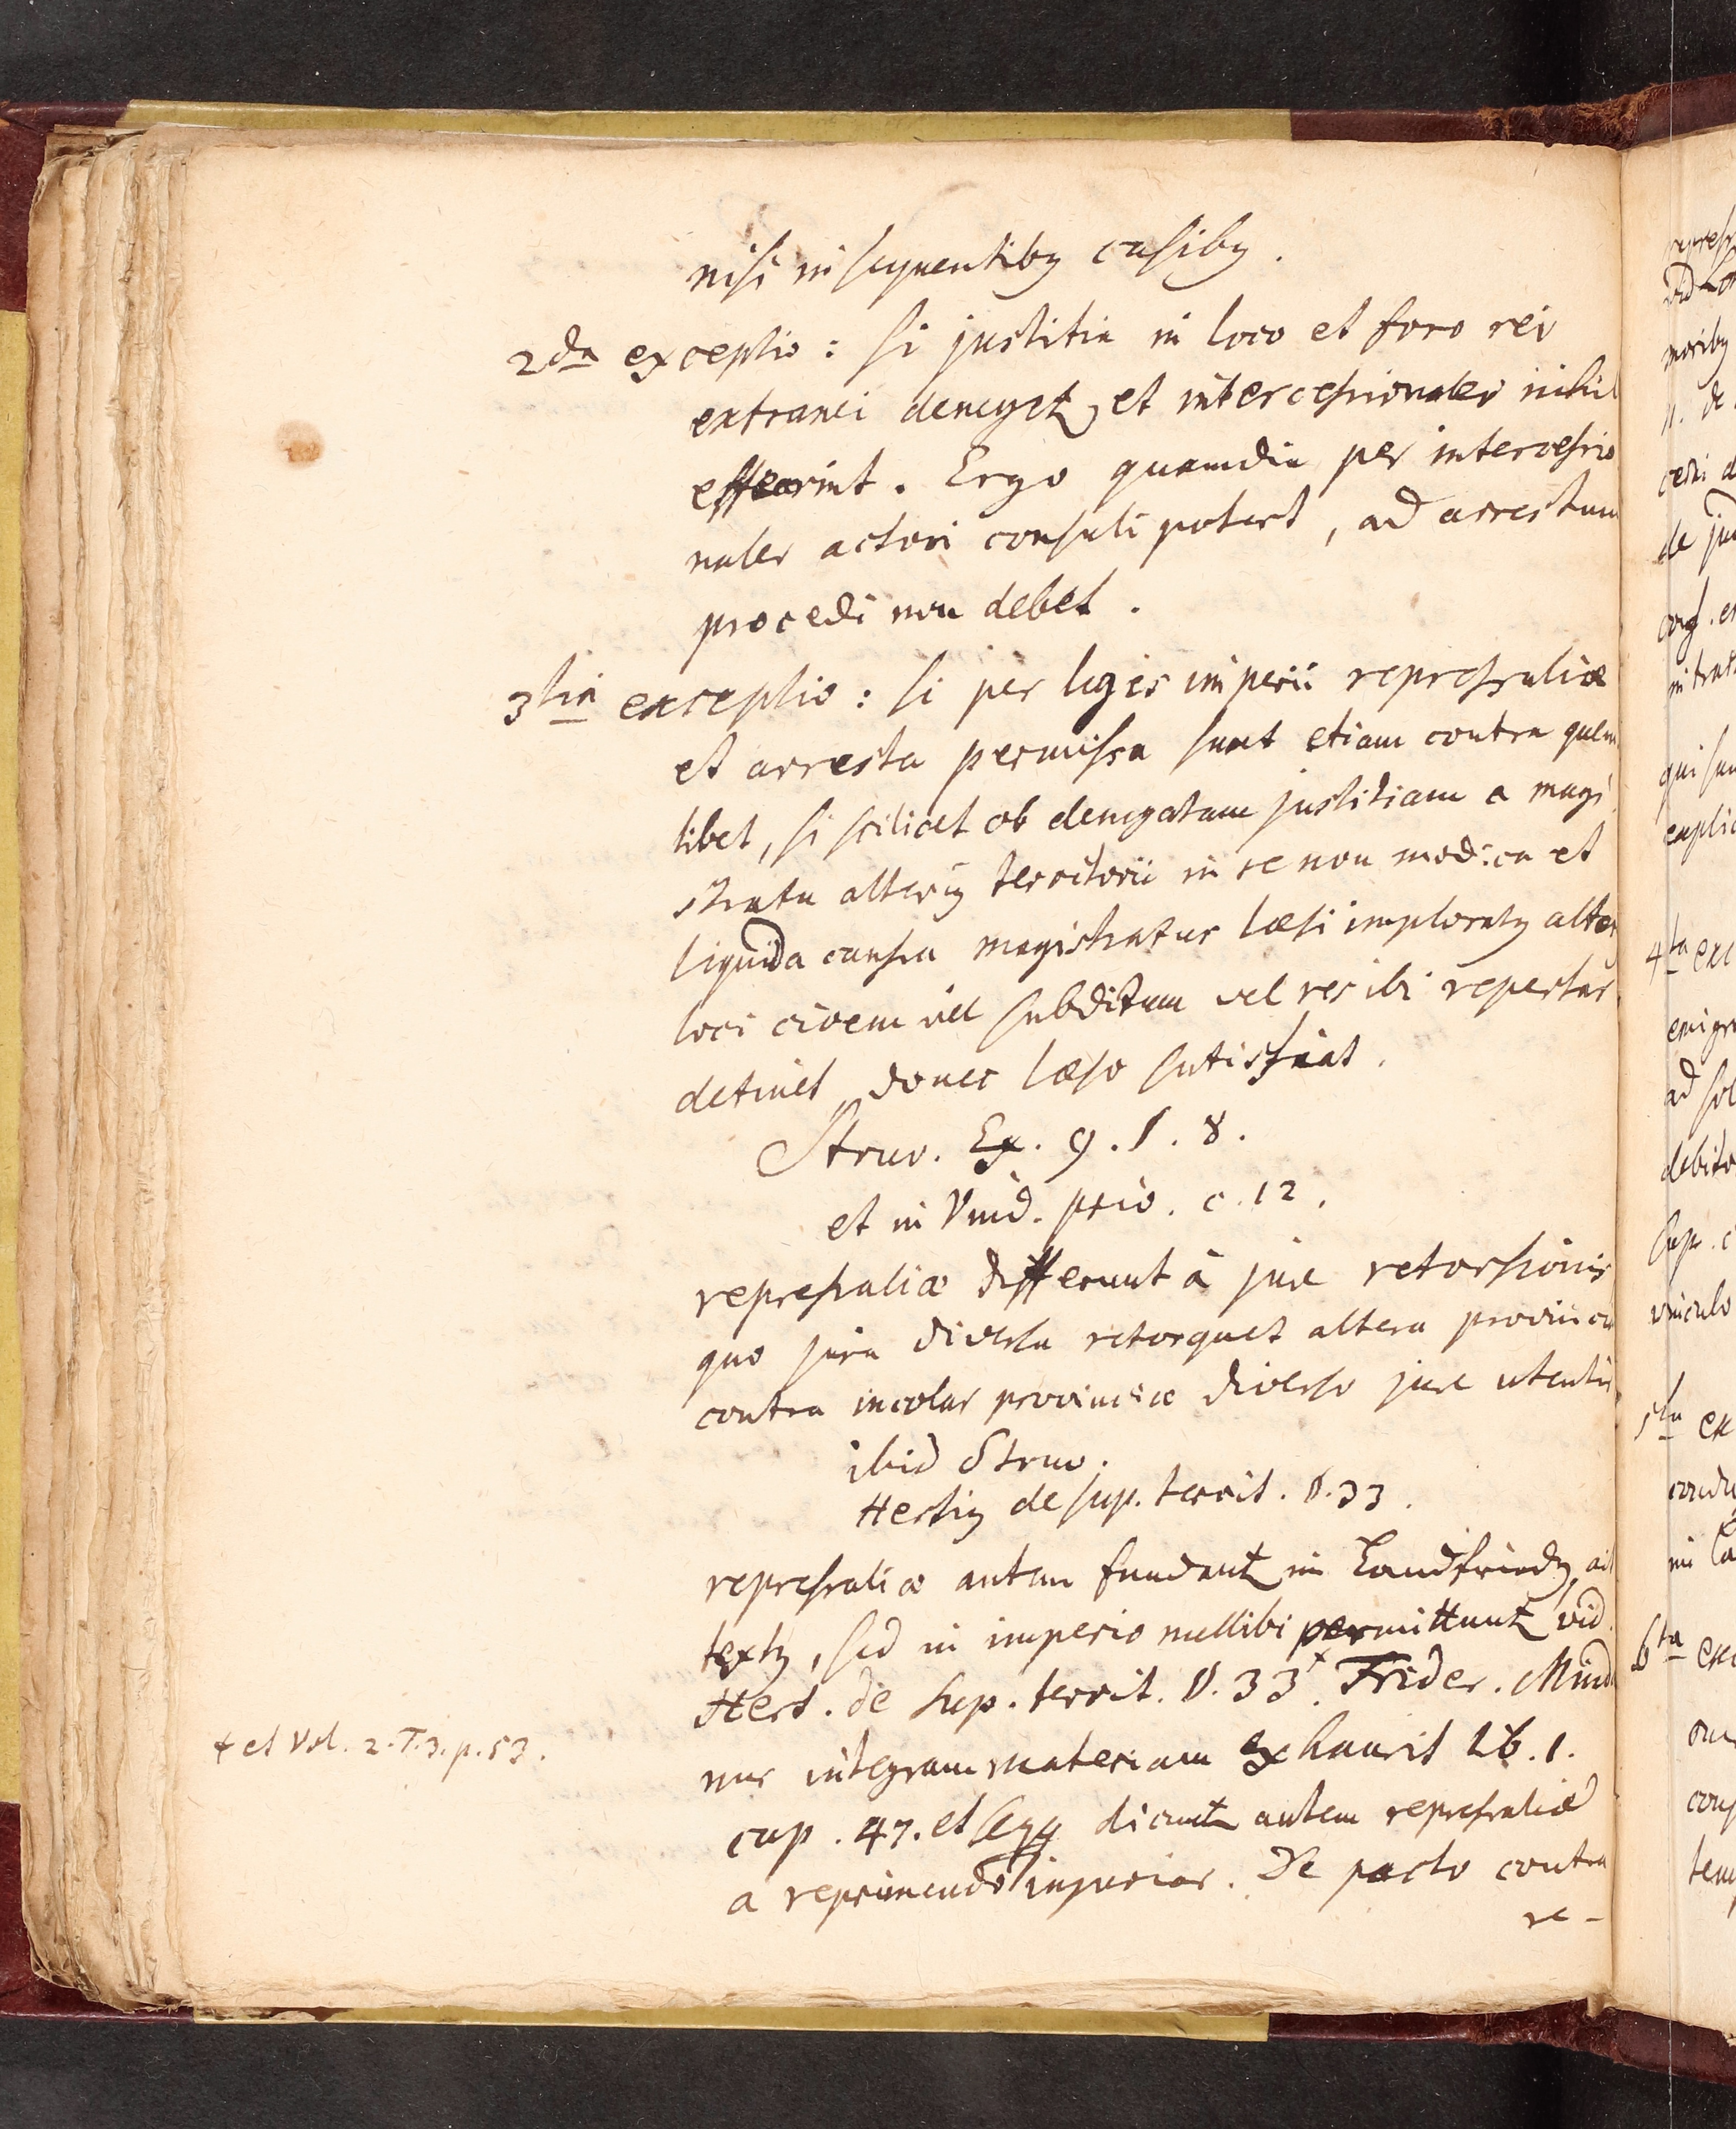 nisi in sequentiby casiby.
2da exceptio: si justitia in loco et foro rei
extranei denegetur, et intercessionales nihil
effecerint. Ergo quamdiu per intercessio
nales actori consuli potest, ad arrestum
procedi non debet.
3tia exceptio: si per leges imperii repressaliæ
et arresta permissa sunt etiam contra quem
libet, si scilicet ob denegatam justitiam a magi
stratu alteriy territorii in re non modica et
liquida caussa magistratus læsi imploraty alter
loci civem vel subditum vel res ibi repertas
detinet donec læso satisfiat.
Struv. Ex. 9. §. 8.
et in Vind. priv. c. 12.
repressaliæ differunt à jure retorsionis
quo jura diversa retorquet altera provincia
contra incolas provinciæ diverso jure utentis
ibid Struv.
Hertiy de sup. territ. §. 33.
repressaliæ autem fundantur in Landfriedy, ait
texty, sed in imperio nullibi permittuntur vid.
Hert. de sup. territ. §. 33+. Frider. Mind
nus integram materiam exhaurit lib. 1.
cap. 47. et seqq dicuntur autem repressaliæ
a reprimendo injurias. De pacto contra
re-
+ et Vol. 2. T. 3. p. 53.
repress
moriby
n. de
cedi d
de jud
in trat
qui sun
explic
4ta exc
emigra
ad sol
debito
sup. c
vinculo
5ta ex
6ta exc